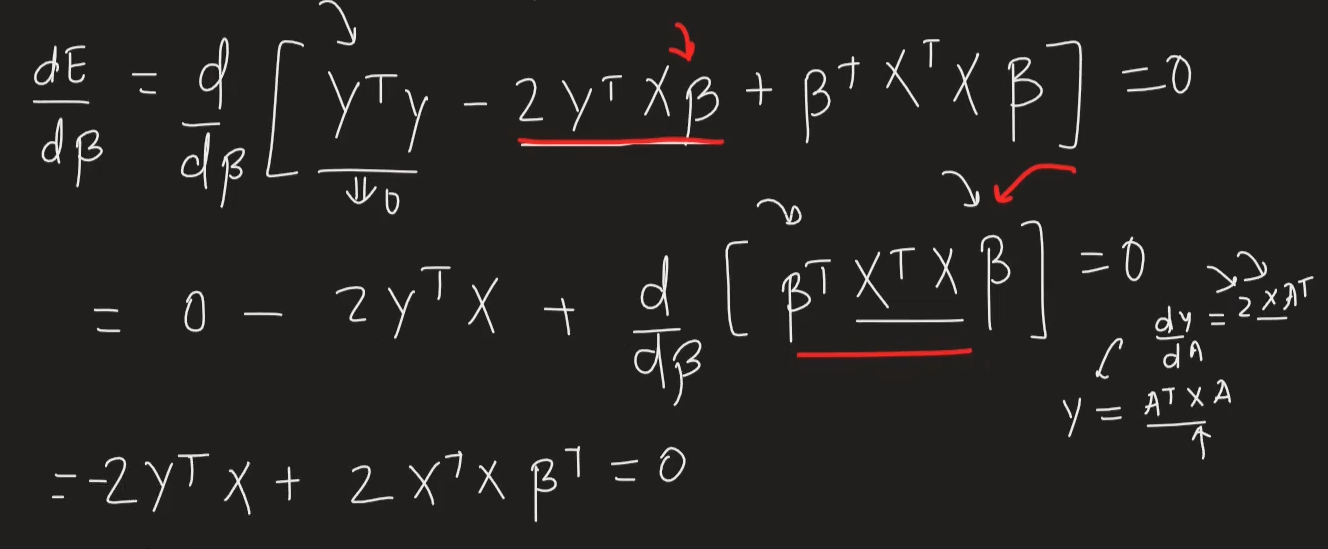 dE/dβ = d/dβ [ Yᵀy - 2yᵀXβ + βᵀXᵀXβ ] = 0
⇓ 0
= 0 - 2yᵀX + d/dβ [ βᵀXᵀXβ ] = 0
dy/dA = 2XAᵀ
y = AᵀXA
= -2yᵀX + 2XᵀXβᵀ = 0